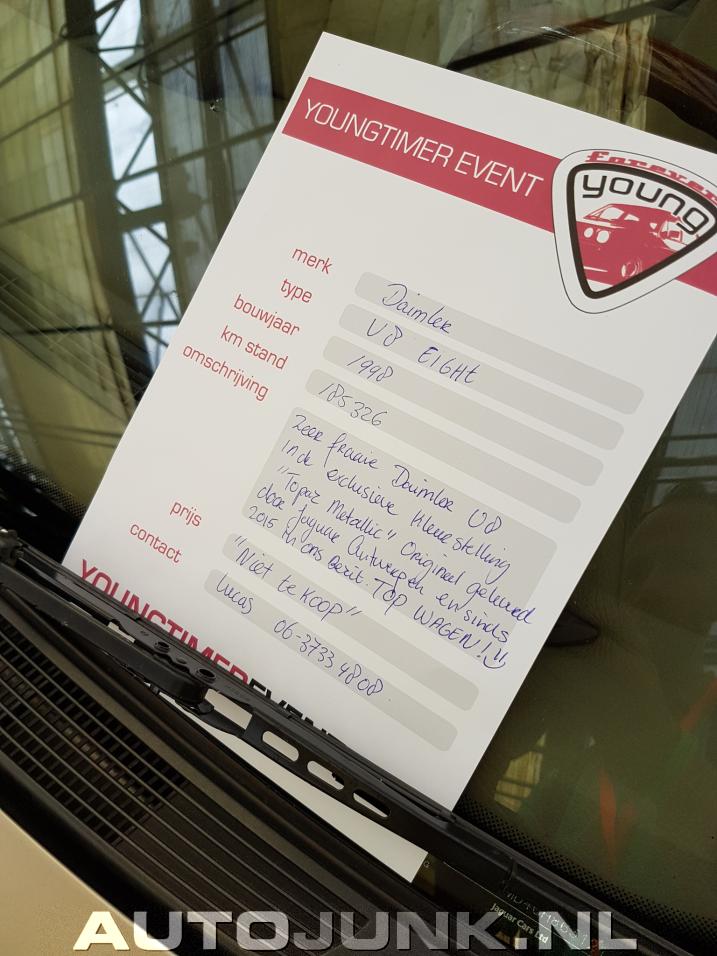 YOUNGTIMER EVENT
Forever
young
merk Daimler
type V8 EIGHt
bouwjaar 1998
km stand 185326
omschrijving Zeer fraaie Daimler V8
in de exclusieve kleurstelling
"Topaz Metallic" Origineel geleverd
door Jaguar Antwerpen en sinds
2015 in ons bezit. TOP WAGEN!!
prijs "Niet te KOOP"
contact Lucas 06-3733 4808
YOUNGTIMER EVENT
Jaguar Cars Ltd
AUTOJUNK.NL